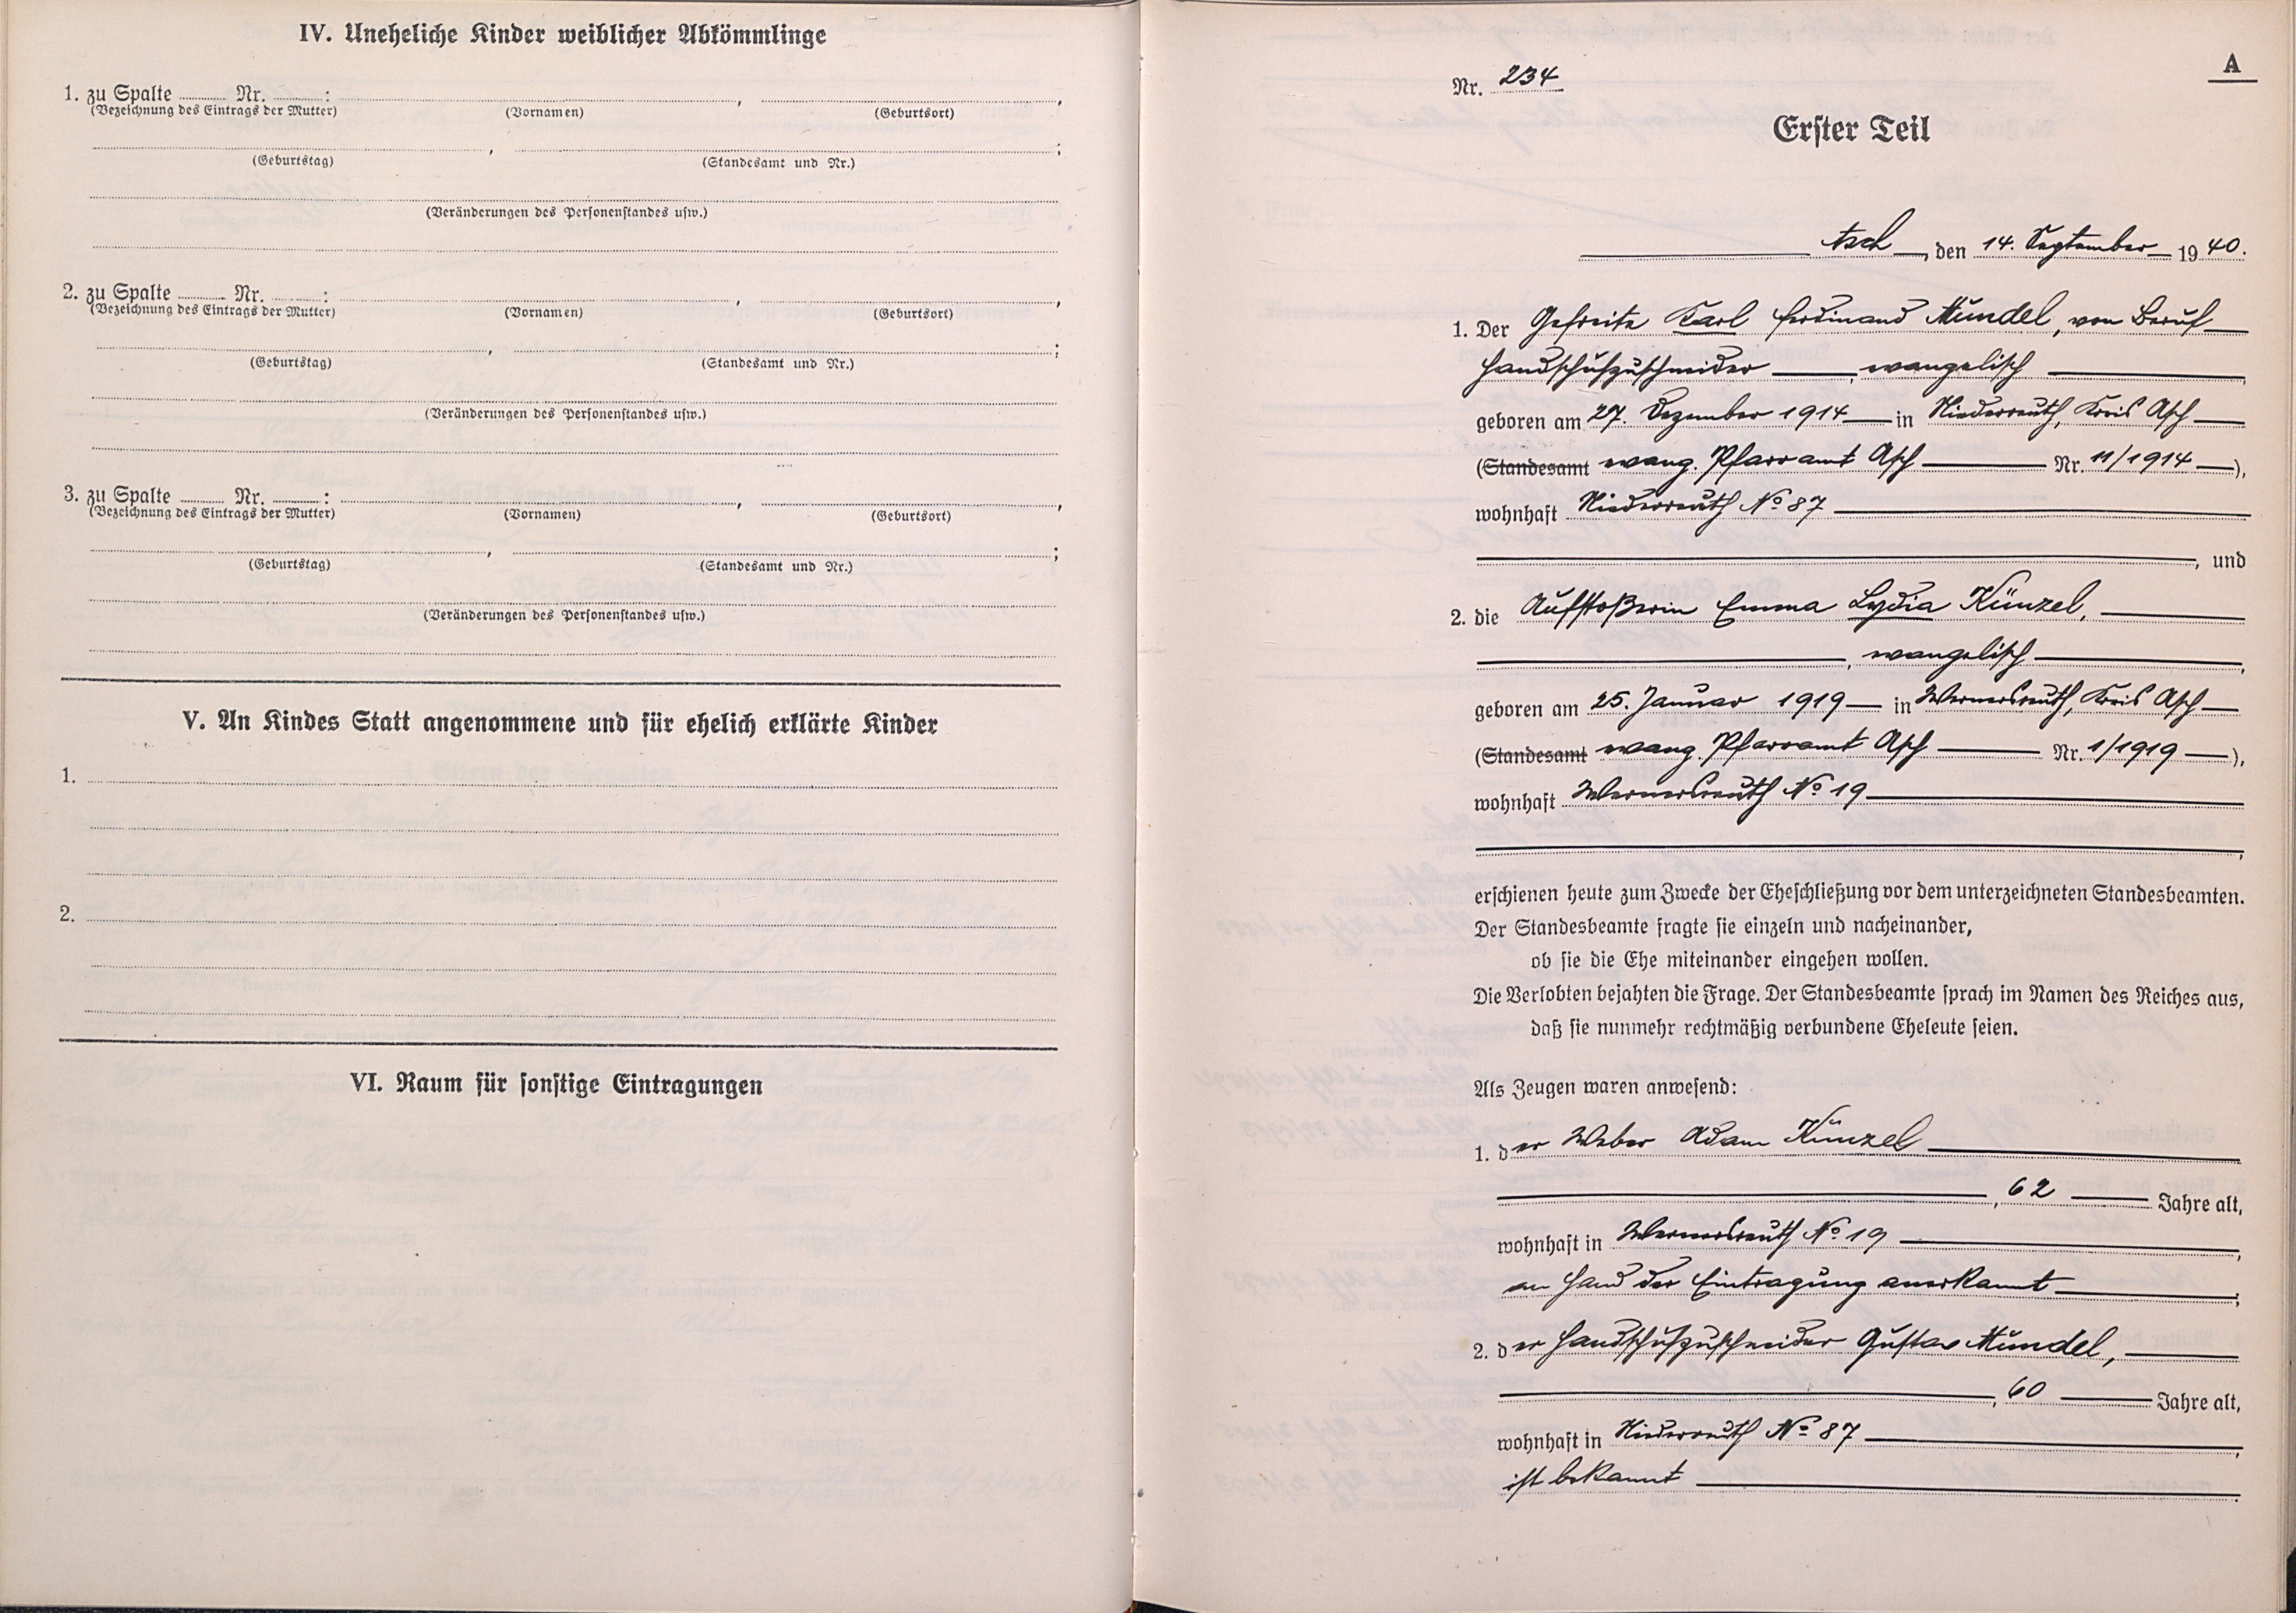 IV. Uneheliche Kinder weiblicher Abkömmlinge
1. zu Spalte Nr. : , ,
(Bezeichnung des Eintrags der Mutter) (Vornamen) (Geburtsort)
, ;
(Geburtstag) (Standesamt und Nr.)
(Veränderungen des Personenstandes usw.)
2. zu Spalte Nr. : , ,
(Bezeichnung des Eintrags der Mutter) (Vornamen) (Geburtsort)
, ;
(Geburtstag) (Standesamt und Nr.)
(Veränderungen des Personenstandes usw.)
3. zu Spalte Nr. : , ,
(Bezeichnung des Eintrags der Mutter) (Vornamen) (Geburtsort)
, ;
(Geburtstag) (Standesamt und Nr.)
(Veränderungen des Personenstandes usw.)
V. An Kindes Statt angenommene und für ehelich erklärte Kinder
1.
2.
VI. Raum für sonstige Eintragungen
A
Nr. 234
Erster Teil
Asch, den 14. September 1940.
1. Der Gefreite Karl Ferdinand Mundel, von Beruf
Handschuhzuschneider, evangelisch,
geboren am 27. Dezember 1914 in Niederreuth, Kreis Asch
(Standesamt evang. Pfarramt Asch Nr. 11/1914),
wohnhaft Niederreuth No 87
, und
2. die Aufstoßerin Emma Lydia Künzel,
, evangelisch,
geboren am 25. Januar 1919 in Wernersreuth, Kreis Asch
(Standesamt evang. Pfarramt Asch Nr. 1/1919),
wohnhaft Wernersreuth No 19
,
erschienen heute zum Zwecke der Eheschließung vor dem unterzeichneten Standesbeamten.
Der Standesbeamte fragte sie einzeln und nacheinander,
ob sie die Ehe miteinander eingehen wollen.
Die Verlobten bejahten die Frage. Der Standesbeamte sprach im Namen des Reiches aus,
daß sie nunmehr rechtmäßig verbundene Eheleute seien.
Als Zeugen waren anwesend:
1. der Weber Adam Künzel
, 62 Jahre alt,
wohnhaft in Wernersreuth No 19,
an Hand der Eintragung anerkannt;
2. der Handschuhzuschneider Gustav Mundel,
, 60 Jahre alt,
wohnhaft in Niederreuth No 87,
ist bekannt.